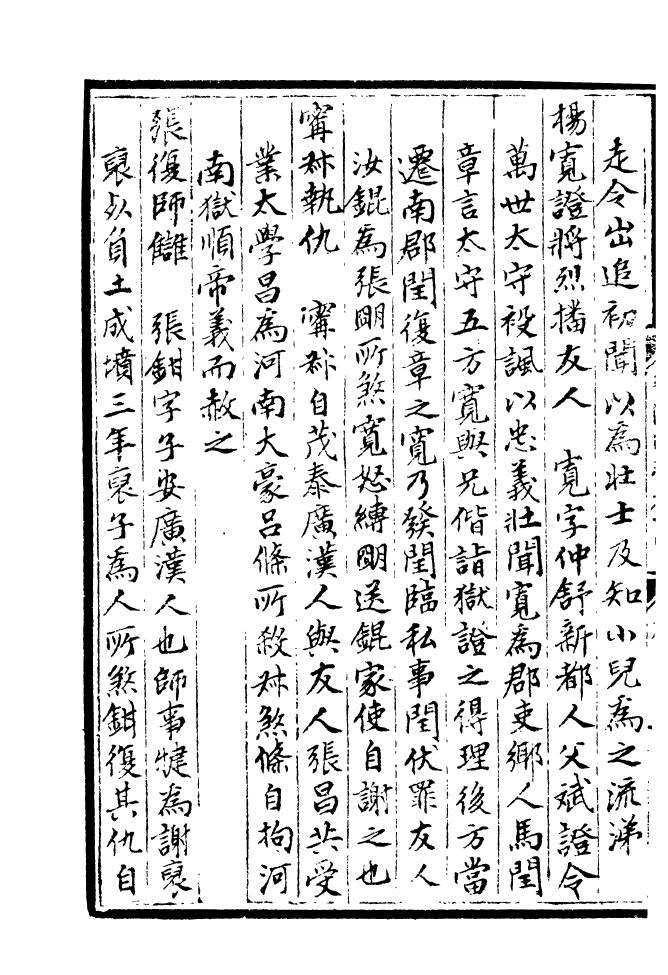 走令出追初聞以為壯士及知小兒為之流涕
楊寬證將烈播友人　寬字仲舒新都人父斌證令
萬世太守被諷以忠義壯聞寬為郡吏鄉人馬閏
章言太守五方寬與兄偕詣獄證之得理後方當
遷南郡閏復章之寬乃發閏臨私事閏伏罪友人
汝錕為張明所煞寬怒縛明送錕家使自謝之也
甯叔執仇　甯叔自茂泰廣漢人與友人張昌共受
業太學昌為河南大豪呂條所殺叔煞條自拘河
南獄順帝義而赦之
張復師讎　張鉗字子安廣漢人也師事犍為謝裒
裒死負土成墳三年裒子為人所煞鉗復其仇自